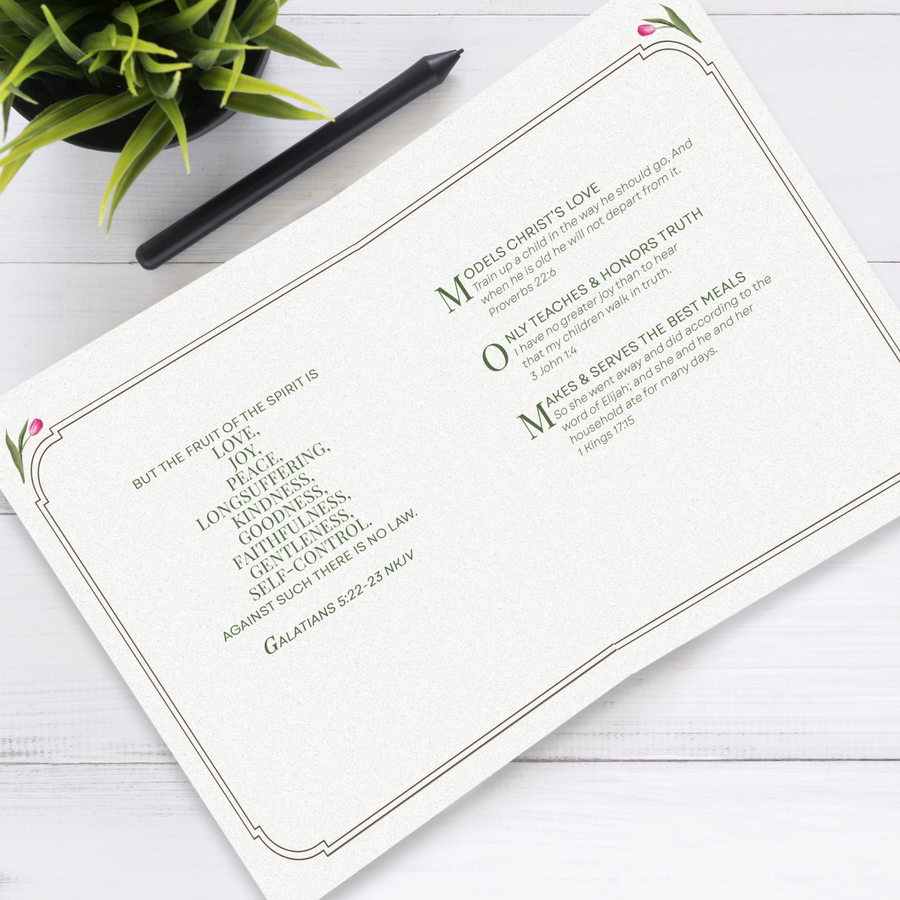 BUT THE FRUIT OF THE SPIRIT IS
LOVE,
JOY,
PEACE,
LONGSUFFERING,
KINDNESS,
GOODNESS,
FAITHFULNESS,
GENTLENESS,
SELF-CONTROL.
AGAINST SUCH THERE IS NO LAW.
GALATIANS 5:22-23 NKJV
MODELS CHRIST'S LOVE
Train up a child in the way he should go, And
when he is old he will not depart from it.
Proverbs 22:6
ONLY TEACHES & HONORS TRUTH
I have no greater joy than to hear
that my children walk in truth.
3 John 1:4
MAKES & SERVES THE BEST MEALS
So she went away and did according to the
word of Elijah; and she and he and her
household ate for many days.
1 Kings 17:15